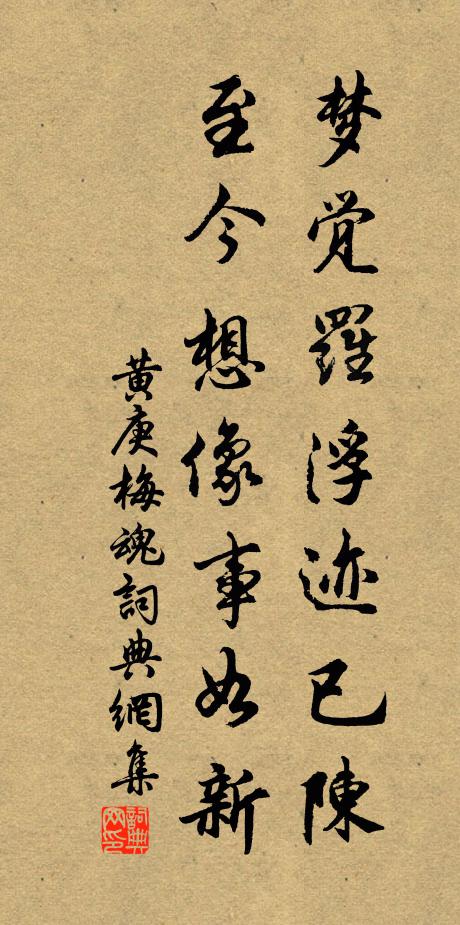 梦觉羅浮迹已陳
至今想像事如新
黄庚梅魂詞典網集
詞典网印